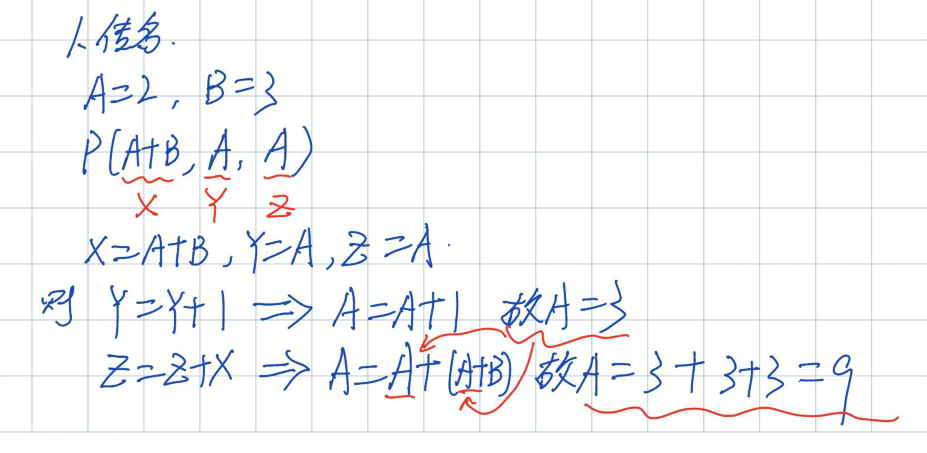 1. 传名.
A=2, B=3
P(A+B, A, A)
X Y Z
X=A+B, Y=A, Z=A.
则 Y=Y+1 ⇒ A=A+1 故A=3
Z=Z+X ⇒ A=A+(A+B) 故A=3+3+3=9